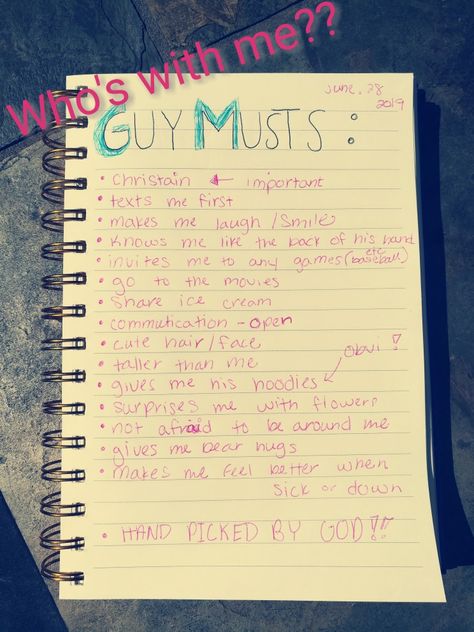 Who's with me??
June, 28
2019
GUY MUSTS:
• Christain ← important
• texts me first
• makes me laugh / smile
• knows me like the back of his hand
• invites me to any games (baseball) etc
• go to the movies
• share ice cream
• commutication - open
• cute hair/face
• taller than me
• gives me his hoodies ← Obvi !
• surprises me with flowers
• not afraid to be around me
• gives me bear hugs
• makes me feel better when
sick or down
• HAND PICKED BY GOD!!